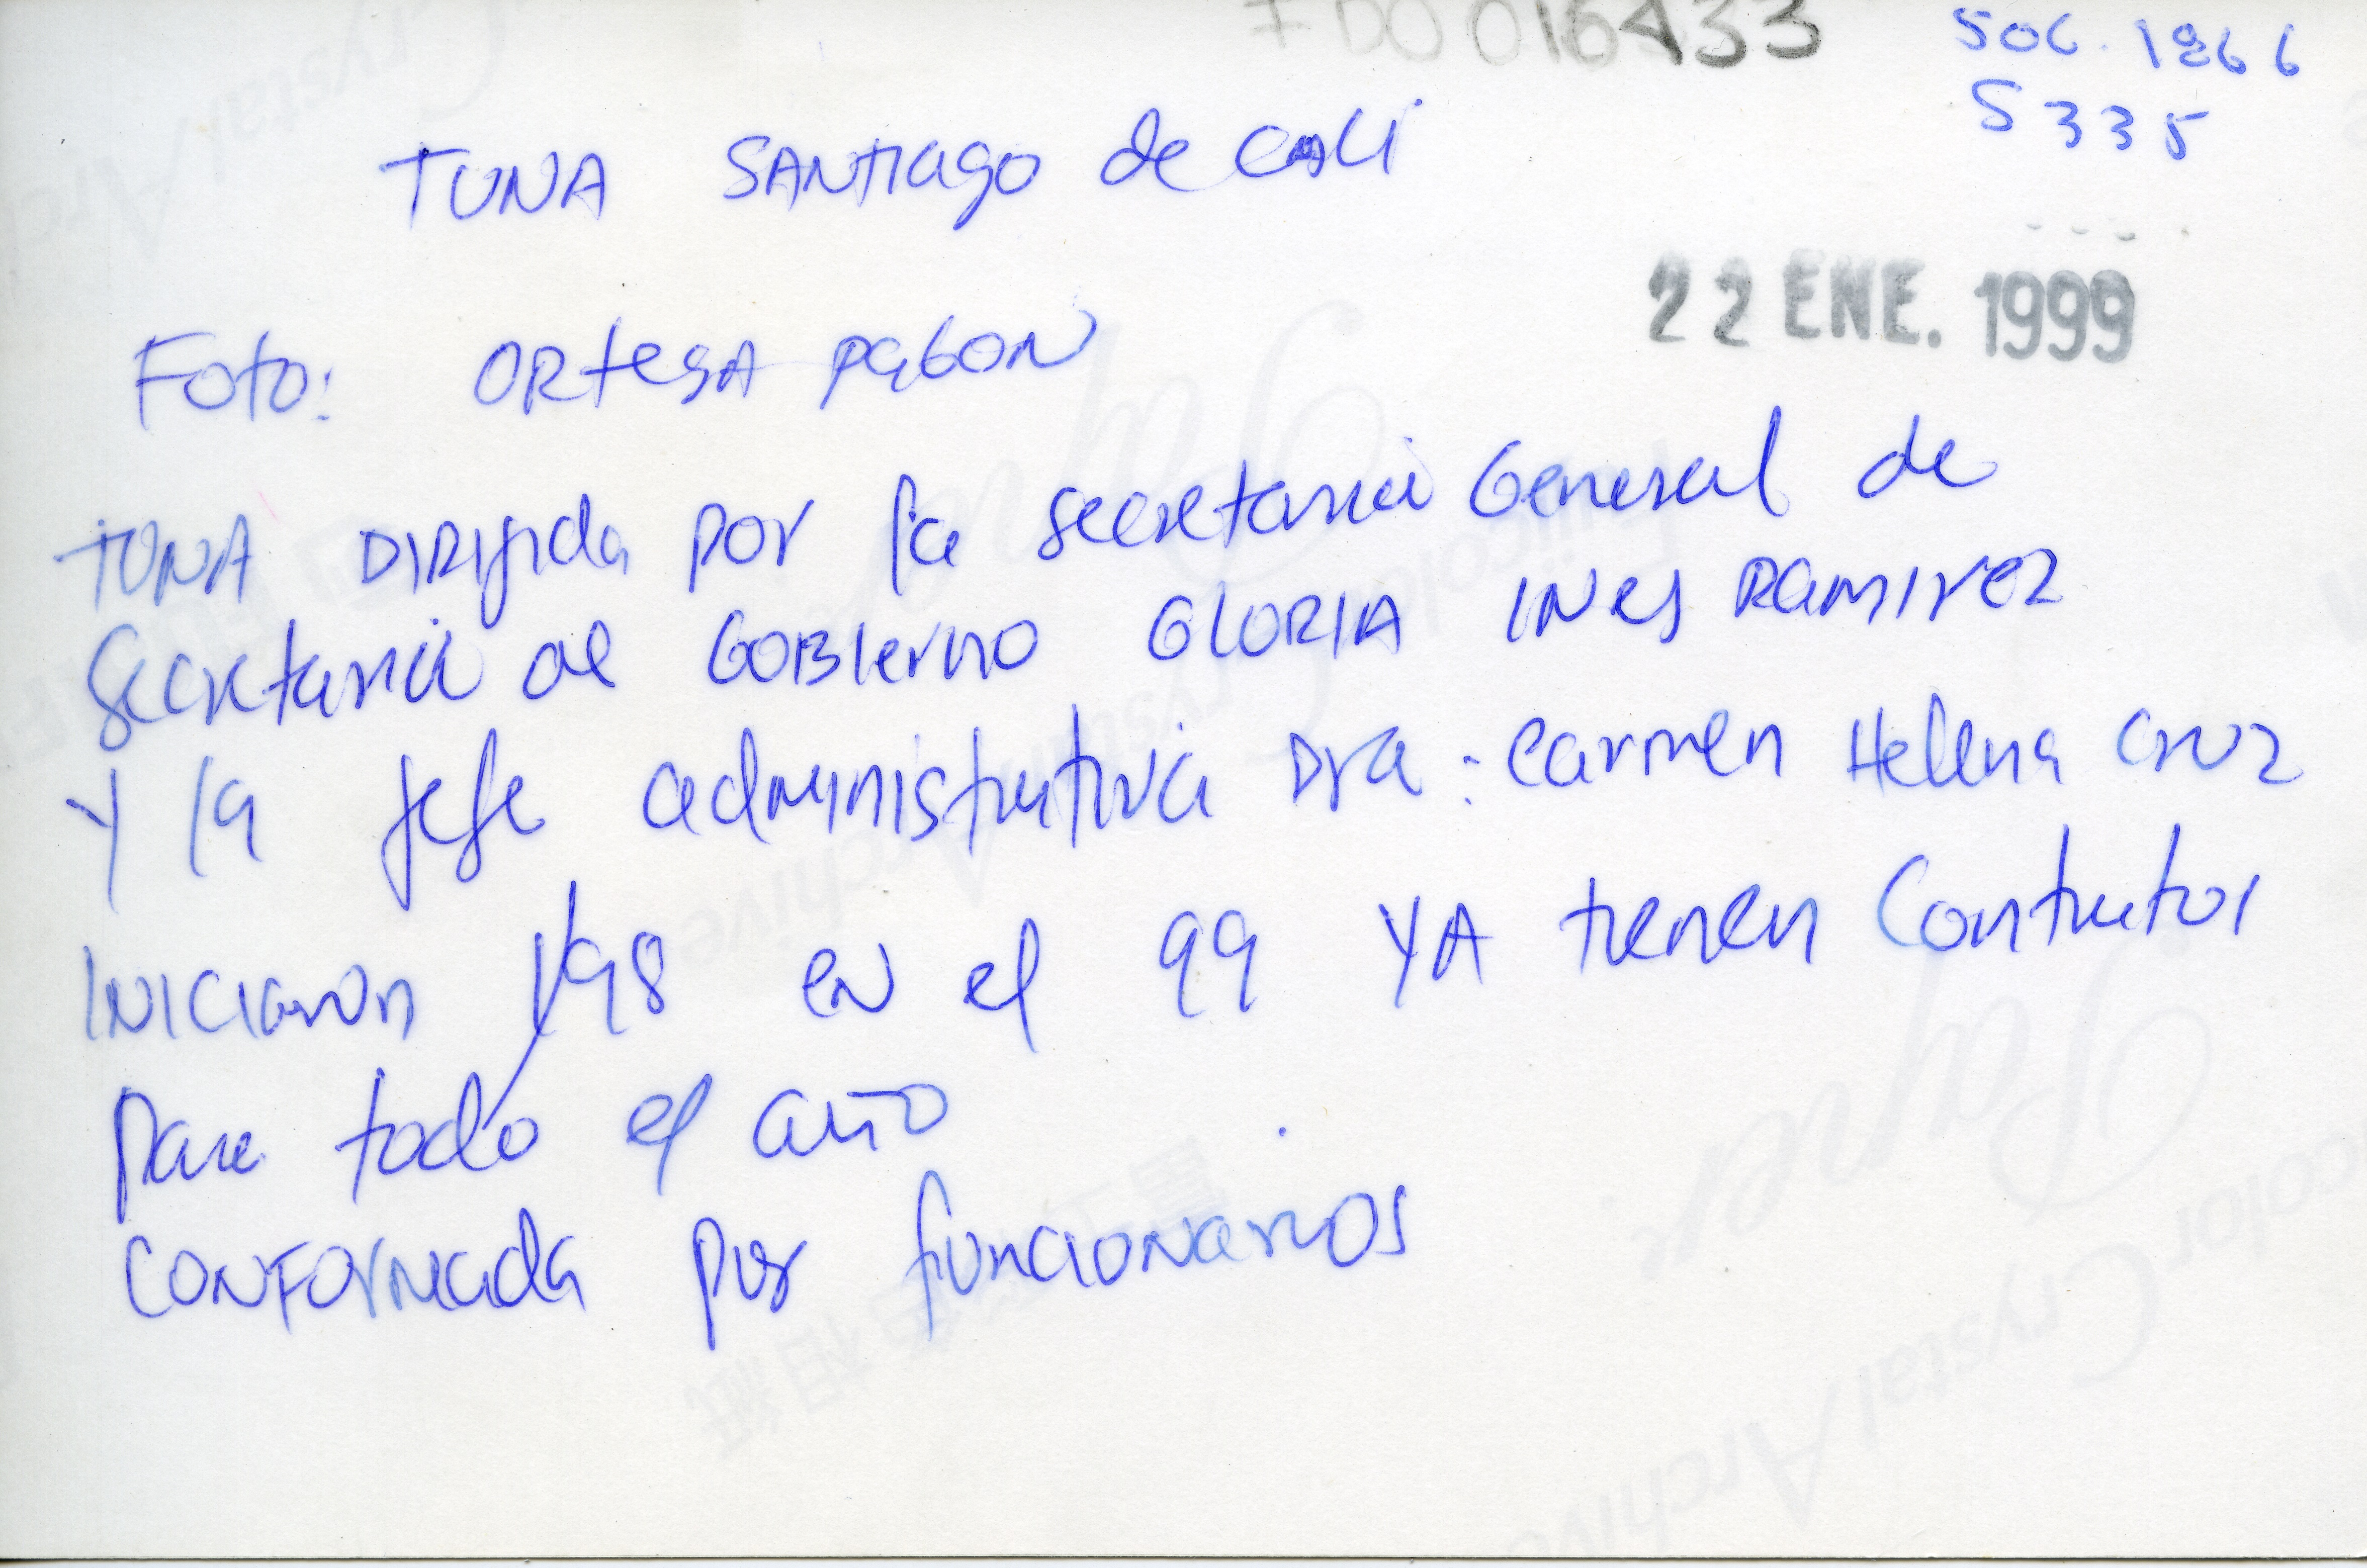 FDO 016433
SOC. 1866
S 335
TUNA SANTIAGO de CALI
22 ENE. 1999
Foto: ORTEGA PABON
TUNA DIRIJIda por la secretaria General de
Secretaria de GOBIerno GLORIA INES RAMIREZ
Y la jefe administrativa Dra: Carmen Helena Cruz
INICIARON /98 EN el 99 YA tienen Contratos
Para todo el año
CONFORMADA por funcionarios
Crystal Archive
Fujicolor
Crystal Archive
Paper
Crystal Archive